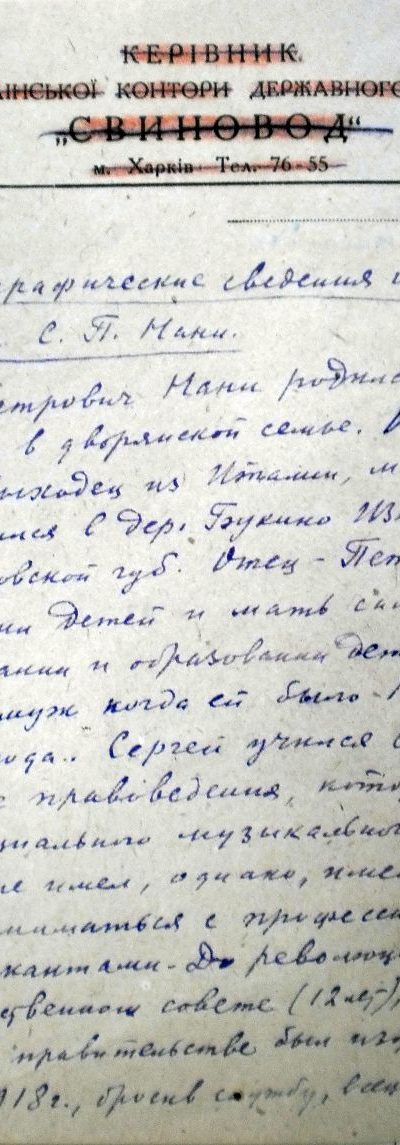 КЕРІВНИК
АЇНСЬКОЇ КОНТОРИ ДЕРЖАВНОГО
„СВИНОВОД“
м. Харків Тел. 76-55
рафические сведения
С. П. Нани.
етрович Нани родился
в дворянской семье.
выходец из Италии, м
ился в дер. Букино Из
овской губ. Отец – Пет
ии детей и мать
ании и образовании дет
муж когда ей было
года. Сергей учился
е правоведения, кото
циального музыкально
не имел, однако, име
ниматься с професси
кантами. До революц
ственном совете (12 лет),
правительстве был
918 г., бросив службу, всец